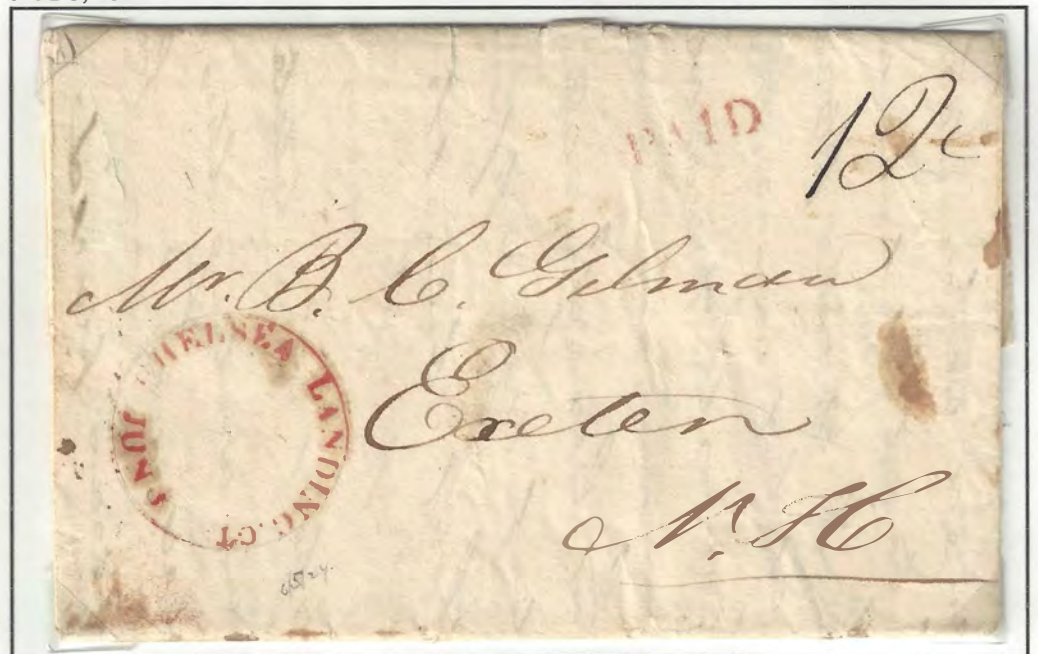 PAID
12c
Mr. B. C. Gilman
Exeter
N. H
CHELSEA LANDING. CT JUN 8